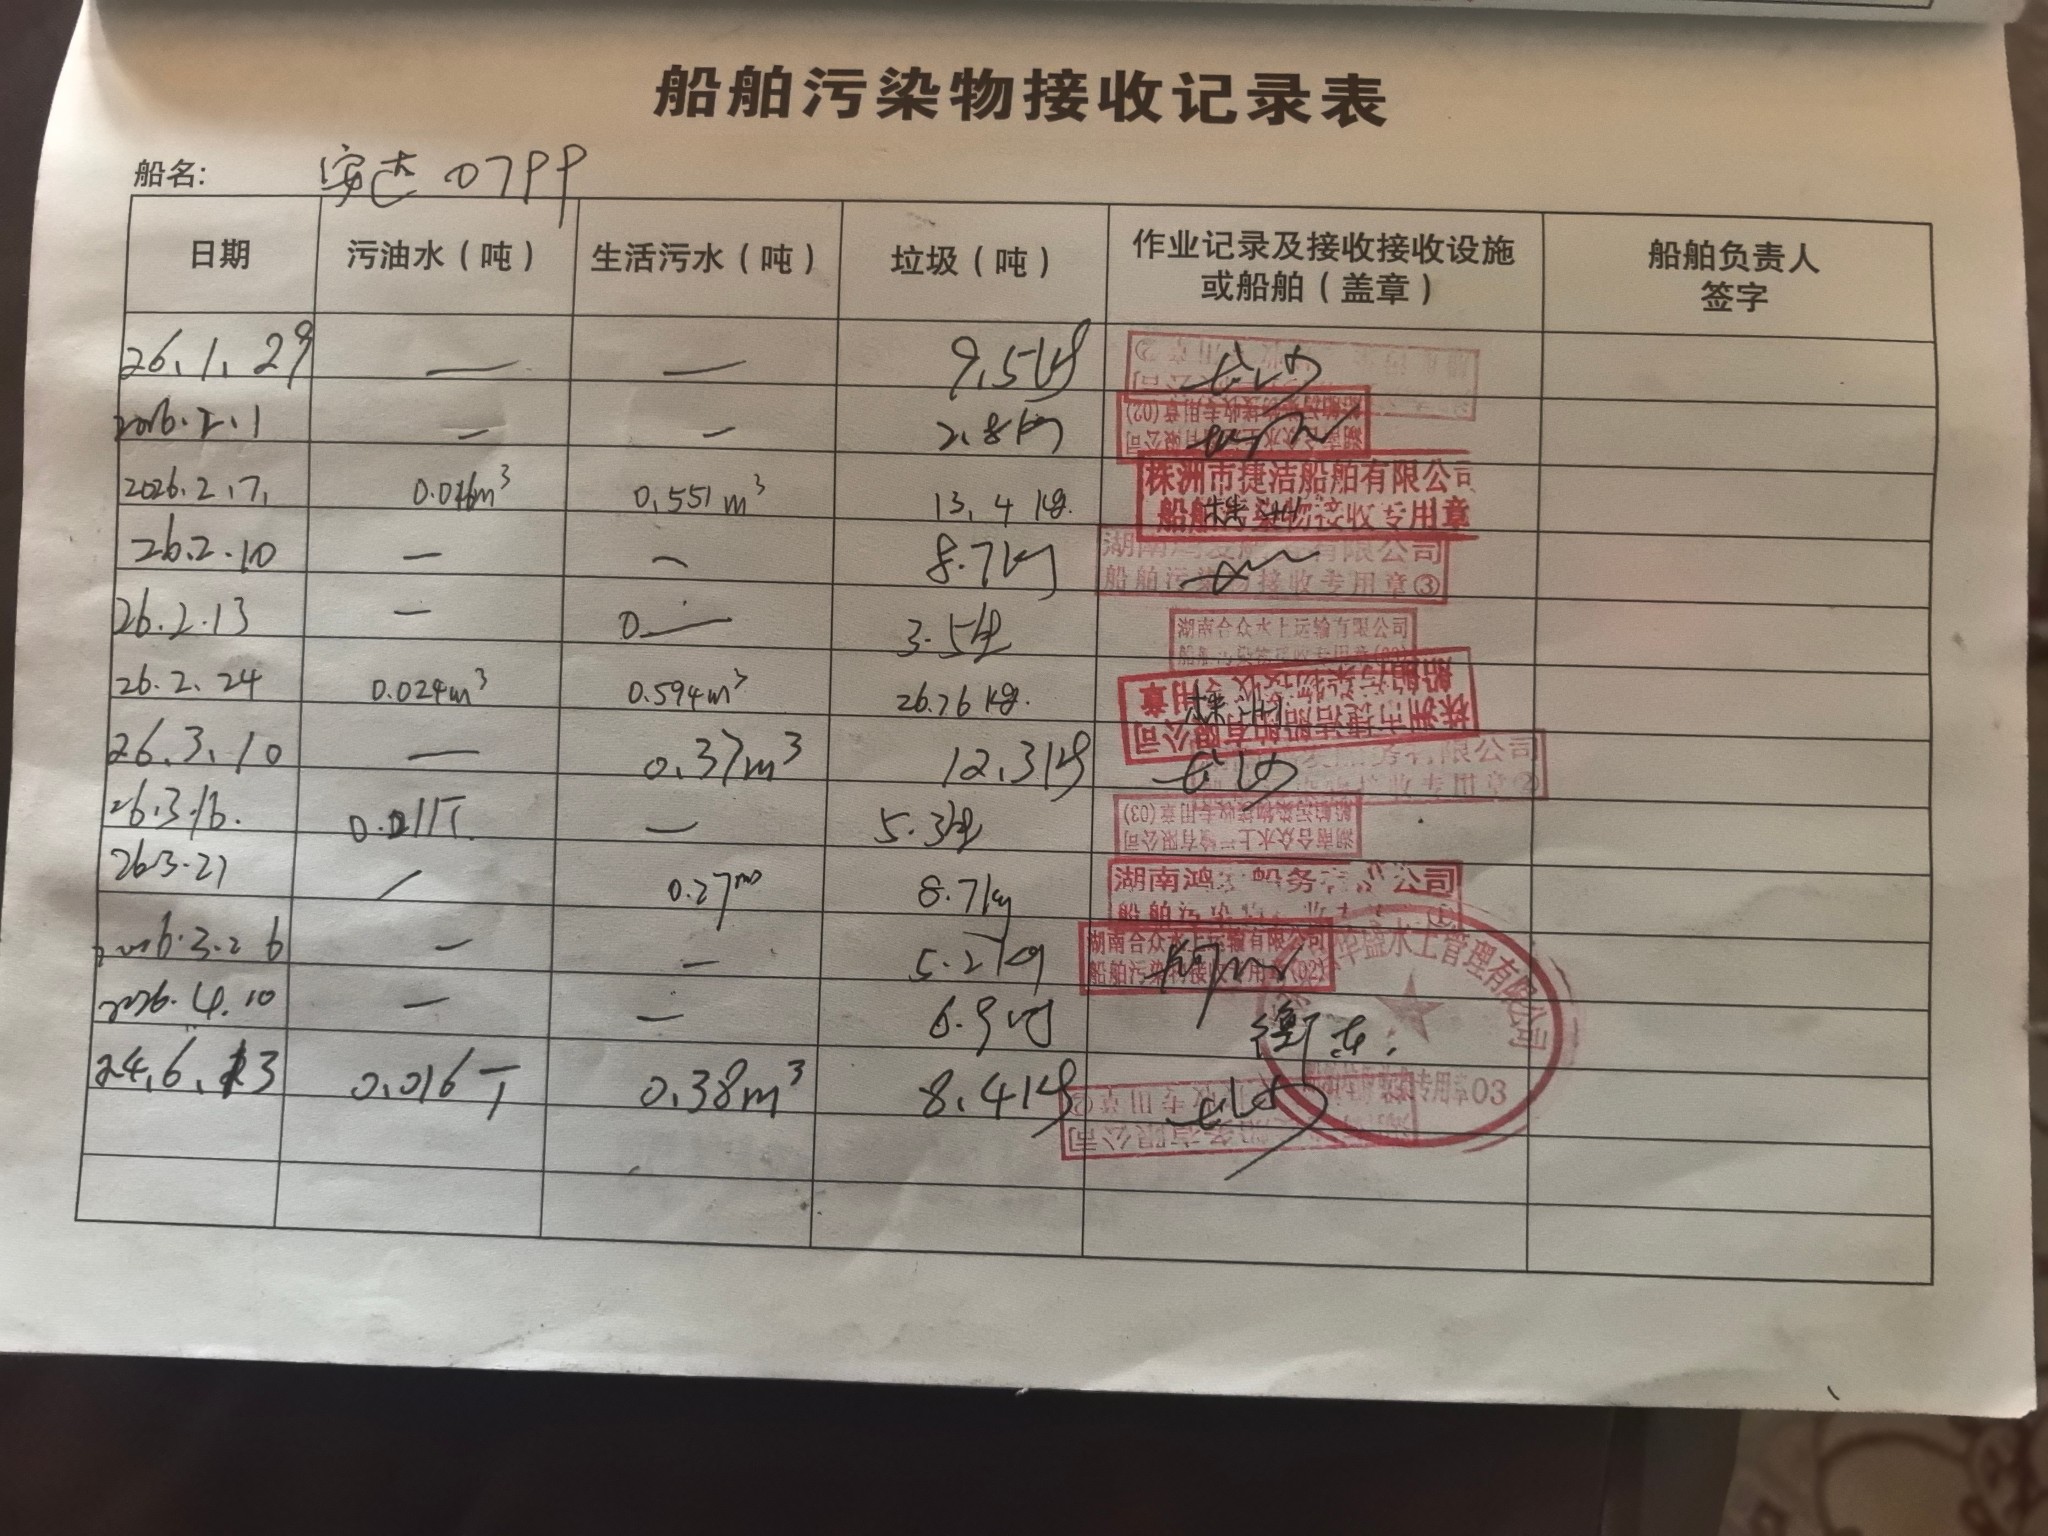 船舶污染物接收记录表
船名: 安达0799
日期 污油水（吨） 生活污水（吨） 垃圾（吨） 作业记录及接收接收设施或船舶（盖章） 船舶负责人签字
26.1.29 — — 9.5kg 长沙
2026.2.1 — — 2.8kg
2026.2.7. 0.026m³ 0.551m³ 13.4kg. 株洲市捷洁船舶有限公司 船舶污染物接收专用章 株洲
26.2.10 — — 8.7kg 湖南鸿发船务有限公司 船舶污染物接收专用章③
26.2.13 — 0— 3.5kg 湖南合众水上运输有限公司
26.2.24 0.024m³ 0.594m³ 26.76kg. 株洲市捷洁船舶有限公司 船舶污染物接收专用章 株洲
26.3.10 — 0.37m³ 12.3kg 长沙 船舶污染物接收专用章②
26.3.16. 0.011T. — 5.3kg 湖南合众水上运输有限公司 船舶污染物接收专用章(03)
26.3.27 / 0.27m³ 8.7kg 湖南鸿 船务 公司
2026.3.26 — — 5.2kg 湖南合众水上运输有限公司 船舶污染物接收专用章(02)
2026.4.10 — — 6.9kg 衡东 华盛水上管理有限公司 专用章03
24.6.13 0.016T 0.38m³ 8.4kg 长沙